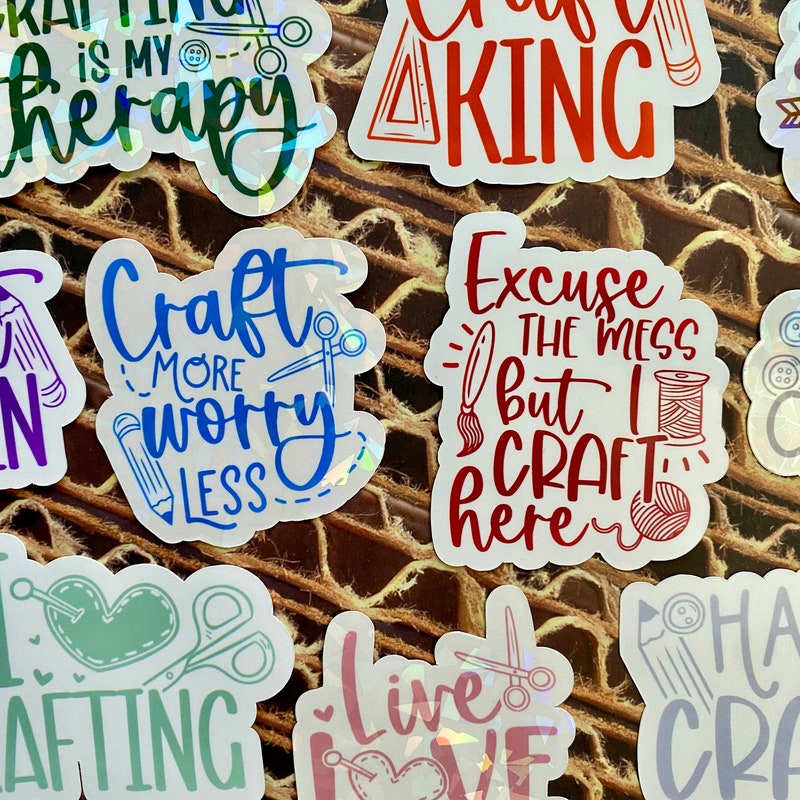 CRAFTING
IS MY
therapy
Craft
KING
Craft
MORE
worry
LESS
Excuse
THE MESS
but I
CRAFT
here
I
CRAFTING
Live
LOVE